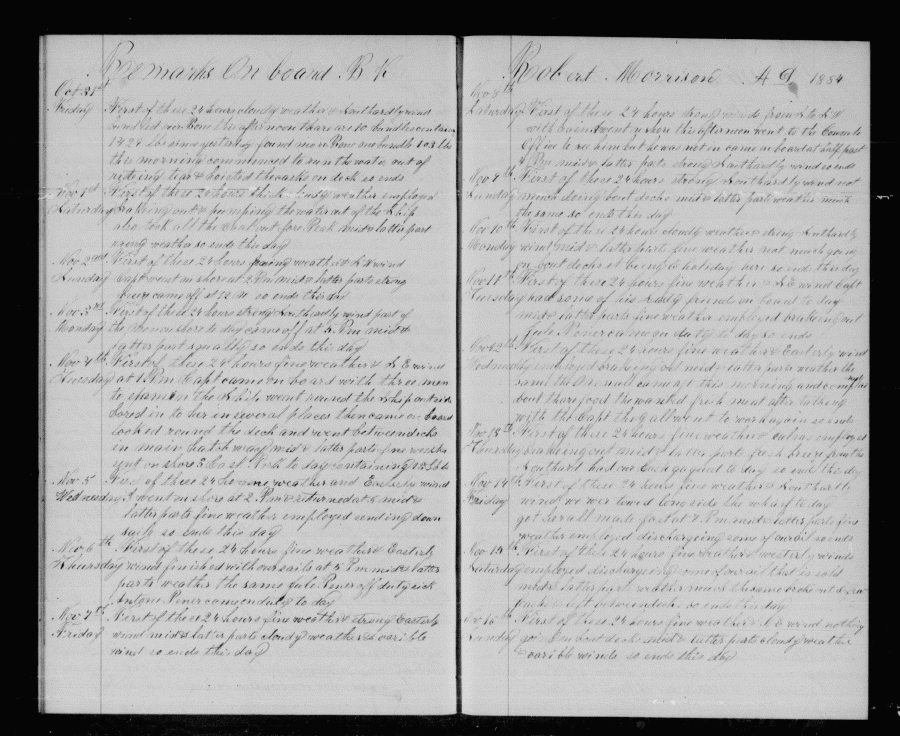 Remarks On board Bk
Oct 31st
Friday First of these 24 hours cloudy weather & Southardly wind
bundled over Bone this afternoon thare are 10 bundles contain
1424 lbs since yesterday found more Bone one bundle 103 lbs
this morning commenced to run the water out of
& hoisted the casks on deck so ends
Nov 1st First of these 24 hours thick weather employed
Saturday Braking out & pumping the water out of the ship
also took all the out fore Peak mid & latter part
weather so ends this day
Nov 2nd First of these 24 hours weather & wind
Sunday Capt went on shore at 2 Pm mid & latter parts strong
came off at 12 M so ends this day
Nov 3rd First of these 24 hours strong Southardly wind part of
Monday the on shore to day came off at 5 Pm mid &
latter part squally so ends this day
Nov 4th First of these 24 hours fine weather & S E wind
Tuesday at 1 Pm Capt came on board with three men
to the Ship went round the ship outside
bored in to her in several places then came on board
looked round the deck and went between decks
in main hatch way mid & latter parts fine weather
put on shore 3 to day containing lbs
Nov 5 First of these 24 hours fine weather and Easterly wind
Wednesday I went on shore at 2 Pm & returned at 5 mid &
latter parts fine weather employed sending down
sails so ends this day
Nov 6th First of these 24 hours fine weather & Easterly
Thursday winds finished with our sails at 5 Pm mid & latter
parts weather the same off duty sick
Antone came on duty to day
Nov 7th First of these 24 hours fine weather & strong Easterly
Friday wind mid & latter parts cloudy weather & varible
wind so ends this day
Robert Morrison A D 1884
Nov 8th
Saturday First of these 24 hours strong winds from S to S W
with rain I went on shore this afternoon went to the Consuls
Office to see him but he was not in came on board at half past
4 Pm mid & latter parts strong Southardly wind so ends
Nov 9th First of these 24 hours strong Southardly wind not
Sunday much doing bout decks mid & latter parts weather much
the same so ends this day
Nov 10th First of these 24 hours cloudy weather & strong Southardly
Monday wind mid & latter parts fine weather not much going
on bout decks it being a holiday here so ends this day
Nov 11th First of these 24 hours fine weather & S E wind Capt
Tuesday had some of his Lady friends on board to day
mid & latter parts fine weather employed braking out
came on duty to day so ends
Nov 12th First of these 24 hours fine weather & Easterly wind
Wednesday employed braking out mid & latter parts weather the
same the came aft this morning and complained
bout there food the wanted fresh meat after talking
with the Capt they all went to work again so ends
Nov 13th First of these 24 hours fine weather & calms employed
Thursday braking out mid & latter parts fresh breeze from the
Southard had our to day so ends this day
Nov 14th First of these 24 hours fine weather & Southardly
Friday wind we wer towed long side the wharf to day
got her all made fast at 4 Pm mid & latter parts fine
weather employed discharging some of our oil so ends
Nov 15th First of these 24 hours fine weather & westerly winds
Saturday employed discharging some of our oil that is sold
mid & latter part weather much the same
left between decks so ends this day
Nov 16th First of these 24 hours fine weather & S E wind nothing
Sunday going on bout decks mid & latter parts cloudy weather
& varible winds so ends this day